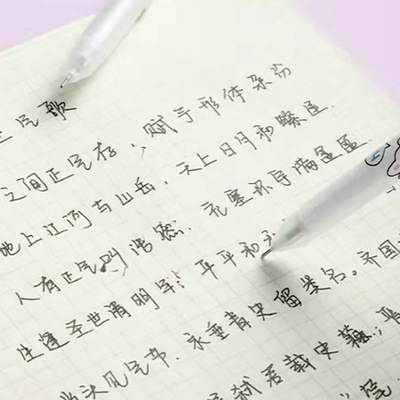 正气歌
之间正气存，赋予形体杂纷
地上江河与山岳．天上日月和繁星．
人有正气叫浩然．充塞环宇满
生逢圣世清明年；平平和
头见气节．永垂青史留美名。齐国
弑君载史藉；